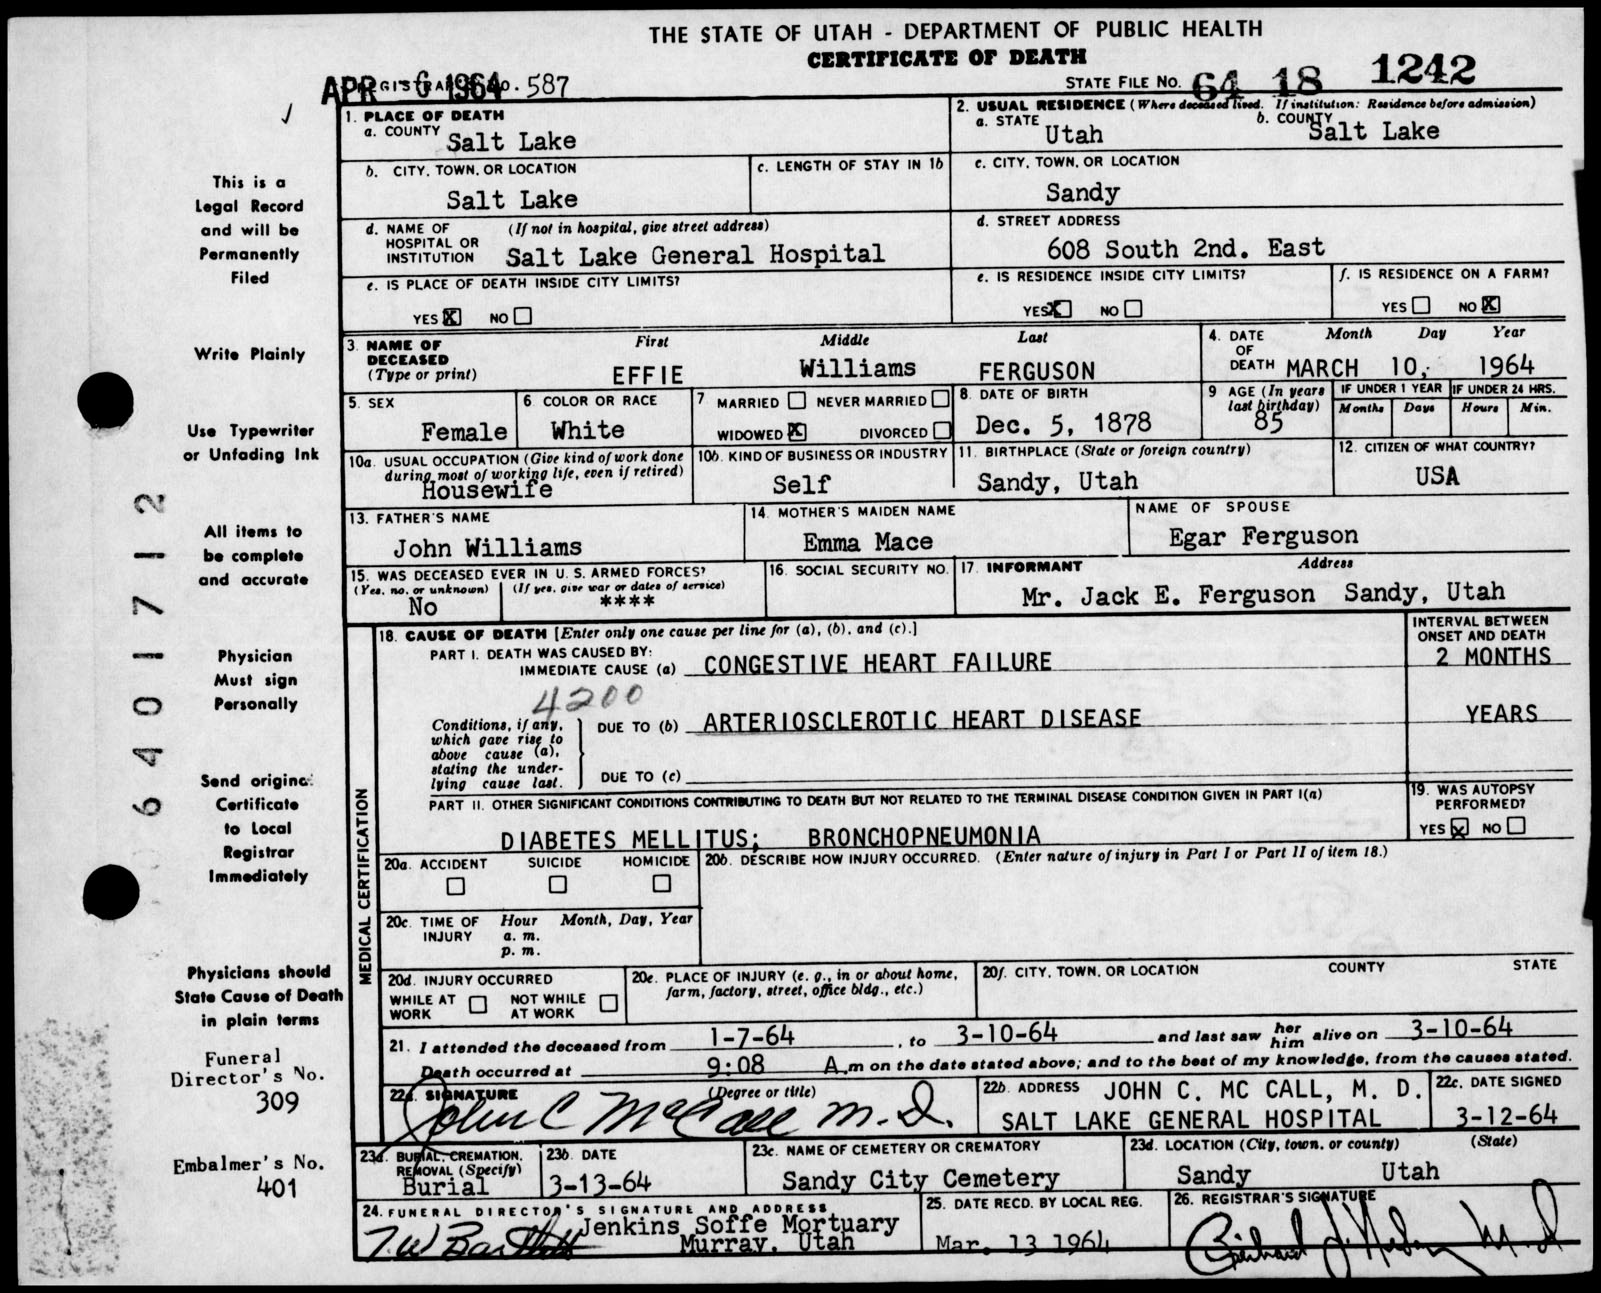 THE STATE OF UTAH - DEPARTMENT OF PUBLIC HEALTH
CERTIFICATE OF DEATH
APR 6 1964 587
STATE FILE NO. 64 18 1242
1. PLACE OF DEATH
a. COUNTY Salt Lake
2. USUAL RESIDENCE (Where deceased lived. If institution: Residence before admission)
a. STATE Utah b. COUNTY Salt Lake
b. CITY, TOWN, OR LOCATION Salt Lake
c. LENGTH OF STAY IN 1b
c. CITY, TOWN, OR LOCATION Sandy
d. NAME OF HOSPITAL OR INSTITUTION (If not in hospital, give street address) Salt Lake General Hospital
d. STREET ADDRESS 608 South 2nd. East
e. IS PLACE OF DEATH INSIDE CITY LIMITS? YES X NO
e. IS RESIDENCE INSIDE CITY LIMITS? YES X NO
f. IS RESIDENCE ON A FARM? YES NO X
3. NAME OF DECEASED (Type or print) First EFFIE Middle Williams Last FERGUSON
4. DATE OF DEATH Month Day Year MARCH 10, 1964
5. SEX Female
6. COLOR OR RACE White
7 MARRIED NEVER MARRIED WIDOWED X DIVORCED
8. DATE OF BIRTH Dec. 5, 1878
9 AGE (In years last birthday) 85
IF UNDER 1 YEAR Months Days
IF UNDER 24 HRS. Hours Min.
10a. USUAL OCCUPATION (Give kind of work done during most of working life, even if retired) Housewife
10b. KIND OF BUSINESS OR INDUSTRY Self
11. BIRTHPLACE (State or foreign country) Sandy, Utah
12. CITIZEN OF WHAT COUNTRY? USA
13. FATHER'S NAME John Williams
14. MOTHER'S MAIDEN NAME Emma Mace
NAME OF SPOUSE Egar Ferguson
15. WAS DECEASED EVER IN U. S. ARMED FORCES? (Yes, no, or unknown) No (If yes, give war or dates of service) ****
16. SOCIAL SECURITY NO.
17. INFORMANT Address Mr. Jack E. Ferguson Sandy, Utah
MEDICAL CERTIFICATION
18. CAUSE OF DEATH [Enter only one cause per line for (a), (b), and (c).]
INTERVAL BETWEEN ONSET AND DEATH
PART I. DEATH WAS CAUSED BY:
IMMEDIATE CAUSE (a) CONGESTIVE HEART FAILURE 2 MONTHS
4200
Conditions, if any, which gave rise to above cause (a), stating the underlying cause last.
DUE TO (b) ARTERIOSCLEROTIC HEART DISEASE YEARS
DUE TO (c)
PART II. OTHER SIGNIFICANT CONDITIONS CONTRIBUTING TO DEATH BUT NOT RELATED TO THE TERMINAL DISEASE CONDITION GIVEN IN PART I(a)
DIABETES MELLITUS; BRONCHOPNEUMONIA
19. WAS AUTOPSY PERFORMED? YES X NO
20a. ACCIDENT SUICIDE HOMICIDE
20b. DESCRIBE HOW INJURY OCCURRED. (Enter nature of injury in Part I or Part II of item 18.)
20c. TIME OF INJURY Hour Month, Day, Year
a. m.
p. m.
20d. INJURY OCCURRED
WHILE AT WORK NOT WHILE AT WORK
20e. PLACE OF INJURY (e. g., in or about home, farm, factory, street, office bldg., etc.)
20f. CITY, TOWN, OR LOCATION COUNTY STATE
21. I attended the deceased from 1-7-64, to 3-10-64 and last saw her him alive on 3-10-64
Death occurred at 9:08 A.m on the date stated above; and to the best of my knowledge, from the causes stated.
22a. SIGNATURE (Degree or title) John C McCall M.D.
22b. ADDRESS JOHN C. MC CALL, M. D.
SALT LAKE GENERAL HOSPITAL
22c. DATE SIGNED 3-12-64
23a. BURIAL, CREMATION, REMOVAL (Specify) Burial
23b. DATE 3-13-64
23c. NAME OF CEMETERY OR CREMATORY Sandy City Cemetery
23d. LOCATION (City, town, or county) (State) Sandy Utah
24. FUNERAL DIRECTOR'S SIGNATURE AND ADDRESS
Jenkins Soffe Mortuary
Murray, Utah
25. DATE RECD. BY LOCAL REG. Mar. 13 1964
26. REGISTRAR'S SIGNATURE
This is a
Legal Record
and will be
Permanently
Filed
Write Plainly
Use Typewriter
or Unfading Ink
All items to
be complete
and accurate
Physician
Must sign
Personally
Send original
Certificate
to Local
Registrar
Immediately
Physicians should
State Cause of Death
in plain terms
Funeral
Director's No.
309
Embalmer's No.
401
64017 12